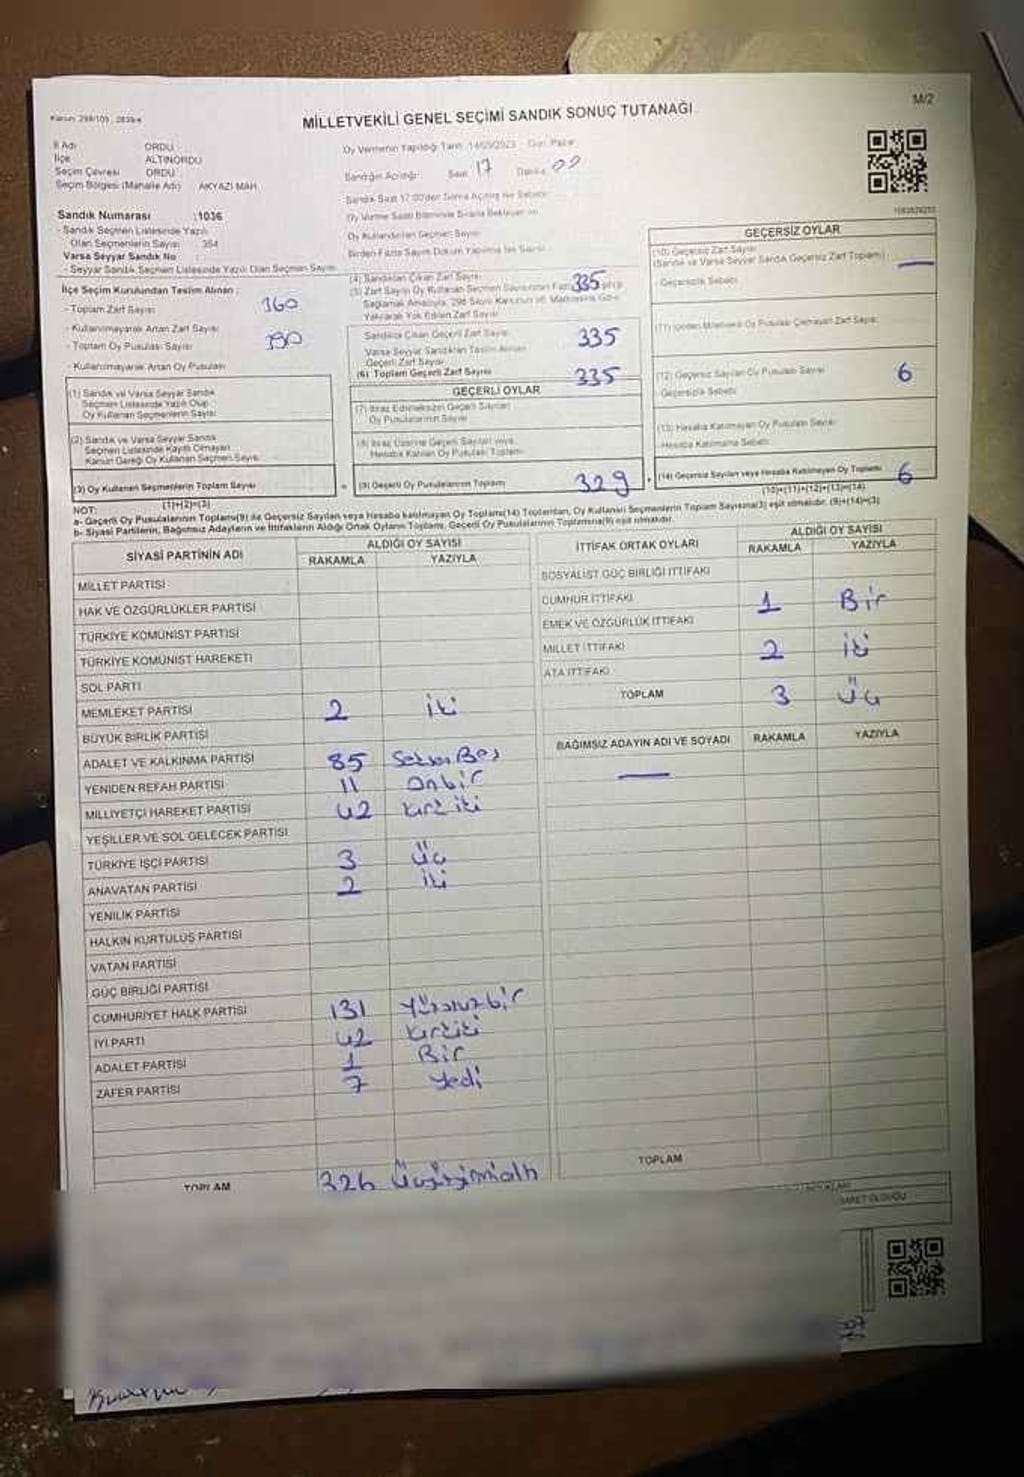 Kanun: 298/105, 2839/4
MİLLETVEKİLİ GENEL SEÇİMİ SANDIK SONUÇ TUTANAĞI
M/2
İl Adı ORDU
İlçe ALTINORDU
Seçim Çevresi ORDU
Seçim Bölgesi (Mahalle Adı) AKYAZI MAH.
Sandık Numarası :1036
- Sandık Seçmen Listesinde Yazılı
Olan Seçmenlerin Sayısı : 354
Varsa Seyyar Sandık No :
- Seyyar Sandık Seçmen Listesinde Yazılı Olan Seçmen Sayısı
Oy Vermenin Yapıldığı Tarih :14/05/2023 Gün: Pazar
Sandığın Açıldığı : Saat 17 Dakika 00
Sandık Saat 17:00'den Sonra Açılmış İse Sebebi:
Oy Verme Saati Bitiminde Sırada Bekleyen ve
Oy Kullandırılan Seçmen Sayısı
Birden Fazla Sayım Döküm Yapılmış İse Sayısı
İlçe Seçim Kurulundan Teslim Alınan :
- Toplam Zarf Sayısı 360
- Kullanılmayarak Artan Zarf Sayısı
- Toplam Oy Pusulası Sayısı 390
- Kullanılmayarak Artan Oy Pusulası
(1) Sandık ve Varsa Seyyar Sandık
Seçmen Listesinde Yazılı Olup
Oy Kullanan Seçmenlerin Sayısı
(2) Sandık ve Varsa Seyyar Sandık
Seçmen Listesinde Kayıtlı Olmayan
Kanun Gereği Oy Kullanan Seçmen Sayısı
(3) Oy Kullanan Seçmenlerin Toplam Sayısı
(1)+(2)=(3)
(4) Sandıktan Çıkan Zarf Sayısı 335
(5) Zarf Sayısı Oy Kullanan Seçmen Sayısından
Sağlamak Amacıyla, 298 Sayılı Kanunun 98. Maddesine Göre
Yakılarak Yok Edilen Zarf Sayısı
Sandıkta Çıkan Geçerli Zarf Sayısı 335
Varsa Seyyar Sandıktan Teslim Alınan
Geçerli Zarf Sayısı
(6) Toplam Geçerli Zarf Sayısı 335
GEÇERLİ OYLAR
(7) İtiraz Edilmeksizin Geçerli Sayılan
Oy Pusulalarının Sayısı
(8) İtiraz Üzerine Geçerli Sayılan veya
Hesaba Katılan Oy Pusulası Toplamı
(9) Geçerli Oy Pusulalarının Toplamı 329
GEÇERSİZ OYLAR
(10) Geçersiz Zarf Sayısı
(Sandık ve Varsa Seyyar Sandık Geçersiz Zarf Toplamı) —
- Geçersizlik Sebebi:
(11) İçinden Milletvekili Oy Pusulası Çıkmayan Zarf Sayısı
(12) Geçersiz Sayılan Oy Pusulası Sayısı 6
- Geçersizlik Sebebi:
(13) Hesaba Katılmayan Oy Pusulası Sayısı
- Hesaba Katılmama Sebebi:
(14) Geçersiz Sayılan veya Hesaba Katılmayan Oy Toplamı 6
(10)+(11)+(12)+(13)=(14)
NOT:
a- Geçerli Oy Pusulalarının Toplamı(9) ile Geçersiz Sayılan veya Hesaba katılmayan Oy Toplamı(14) Toplamları, Oy Kullanan Seçmenlerin Toplam Sayısına(3) eşit olmalıdır. (9)+(14)=(3)
b- Siyasi Partilerin, Bağımsız Adayların ve İttifakların Aldığı Ortak Oyların Toplamı, Geçerli Oy Pusulalarının Toplamına(9) eşit olmalıdır.
SİYASİ PARTİNİN ADI ALDIĞI OY SAYISI
RAKAMLA YAZIYLA
MİLLET PARTİSİ
HAK VE ÖZGÜRLÜKLER PARTİSİ
TÜRKİYE KOMÜNİST PARTİSİ
TÜRKİYE KOMÜNİST HAREKETİ
SOL PARTİ
MEMLEKET PARTİSİ 2 iki
BÜYÜK BİRLİK PARTİSİ
ADALET VE KALKINMA PARTİSİ 85 Seksen Beş
YENİDEN REFAH PARTİSİ 11 Onbir
MİLLİYETÇİ HAREKET PARTİSİ 42 kırk iki
YEŞİLLER VE SOL GELECEK PARTİSİ
TÜRKİYE İŞÇİ PARTİSİ 3 Üç
ANAVATAN PARTİSİ 2 iki
YENİLİK PARTİSİ
HALKIN KURTULUŞ PARTİSİ
VATAN PARTİSİ
GÜÇ BİRLİĞİ PARTİSİ
CUMHURİYET HALK PARTİSİ 131 Yüzotuzbir
İYİ PARTİ 42 kırkiki
ADALET PARTİSİ 1 Bir
ZAFER PARTİSİ 7 Yedi
TOPLAM 326 Üçyüzyirmialtı
İTTİFAK ORTAK OYLARI ALDIĞI OY SAYISI
RAKAMLA YAZIYLA
SOSYALİST GÜÇ BİRLİĞİ İTTİFAKI
CUMHUR İTTİFAKI 1 Bir
EMEK VE ÖZGÜRLÜK İTTİFAKI
MİLLET İTTİFAKI 2 iki
ATA İTTİFAKI
TOPLAM 3 Üç
BAĞIMSIZ ADAYIN ADI VE SOYADI RAKAMLA YAZIYLA
—
TOPLAM